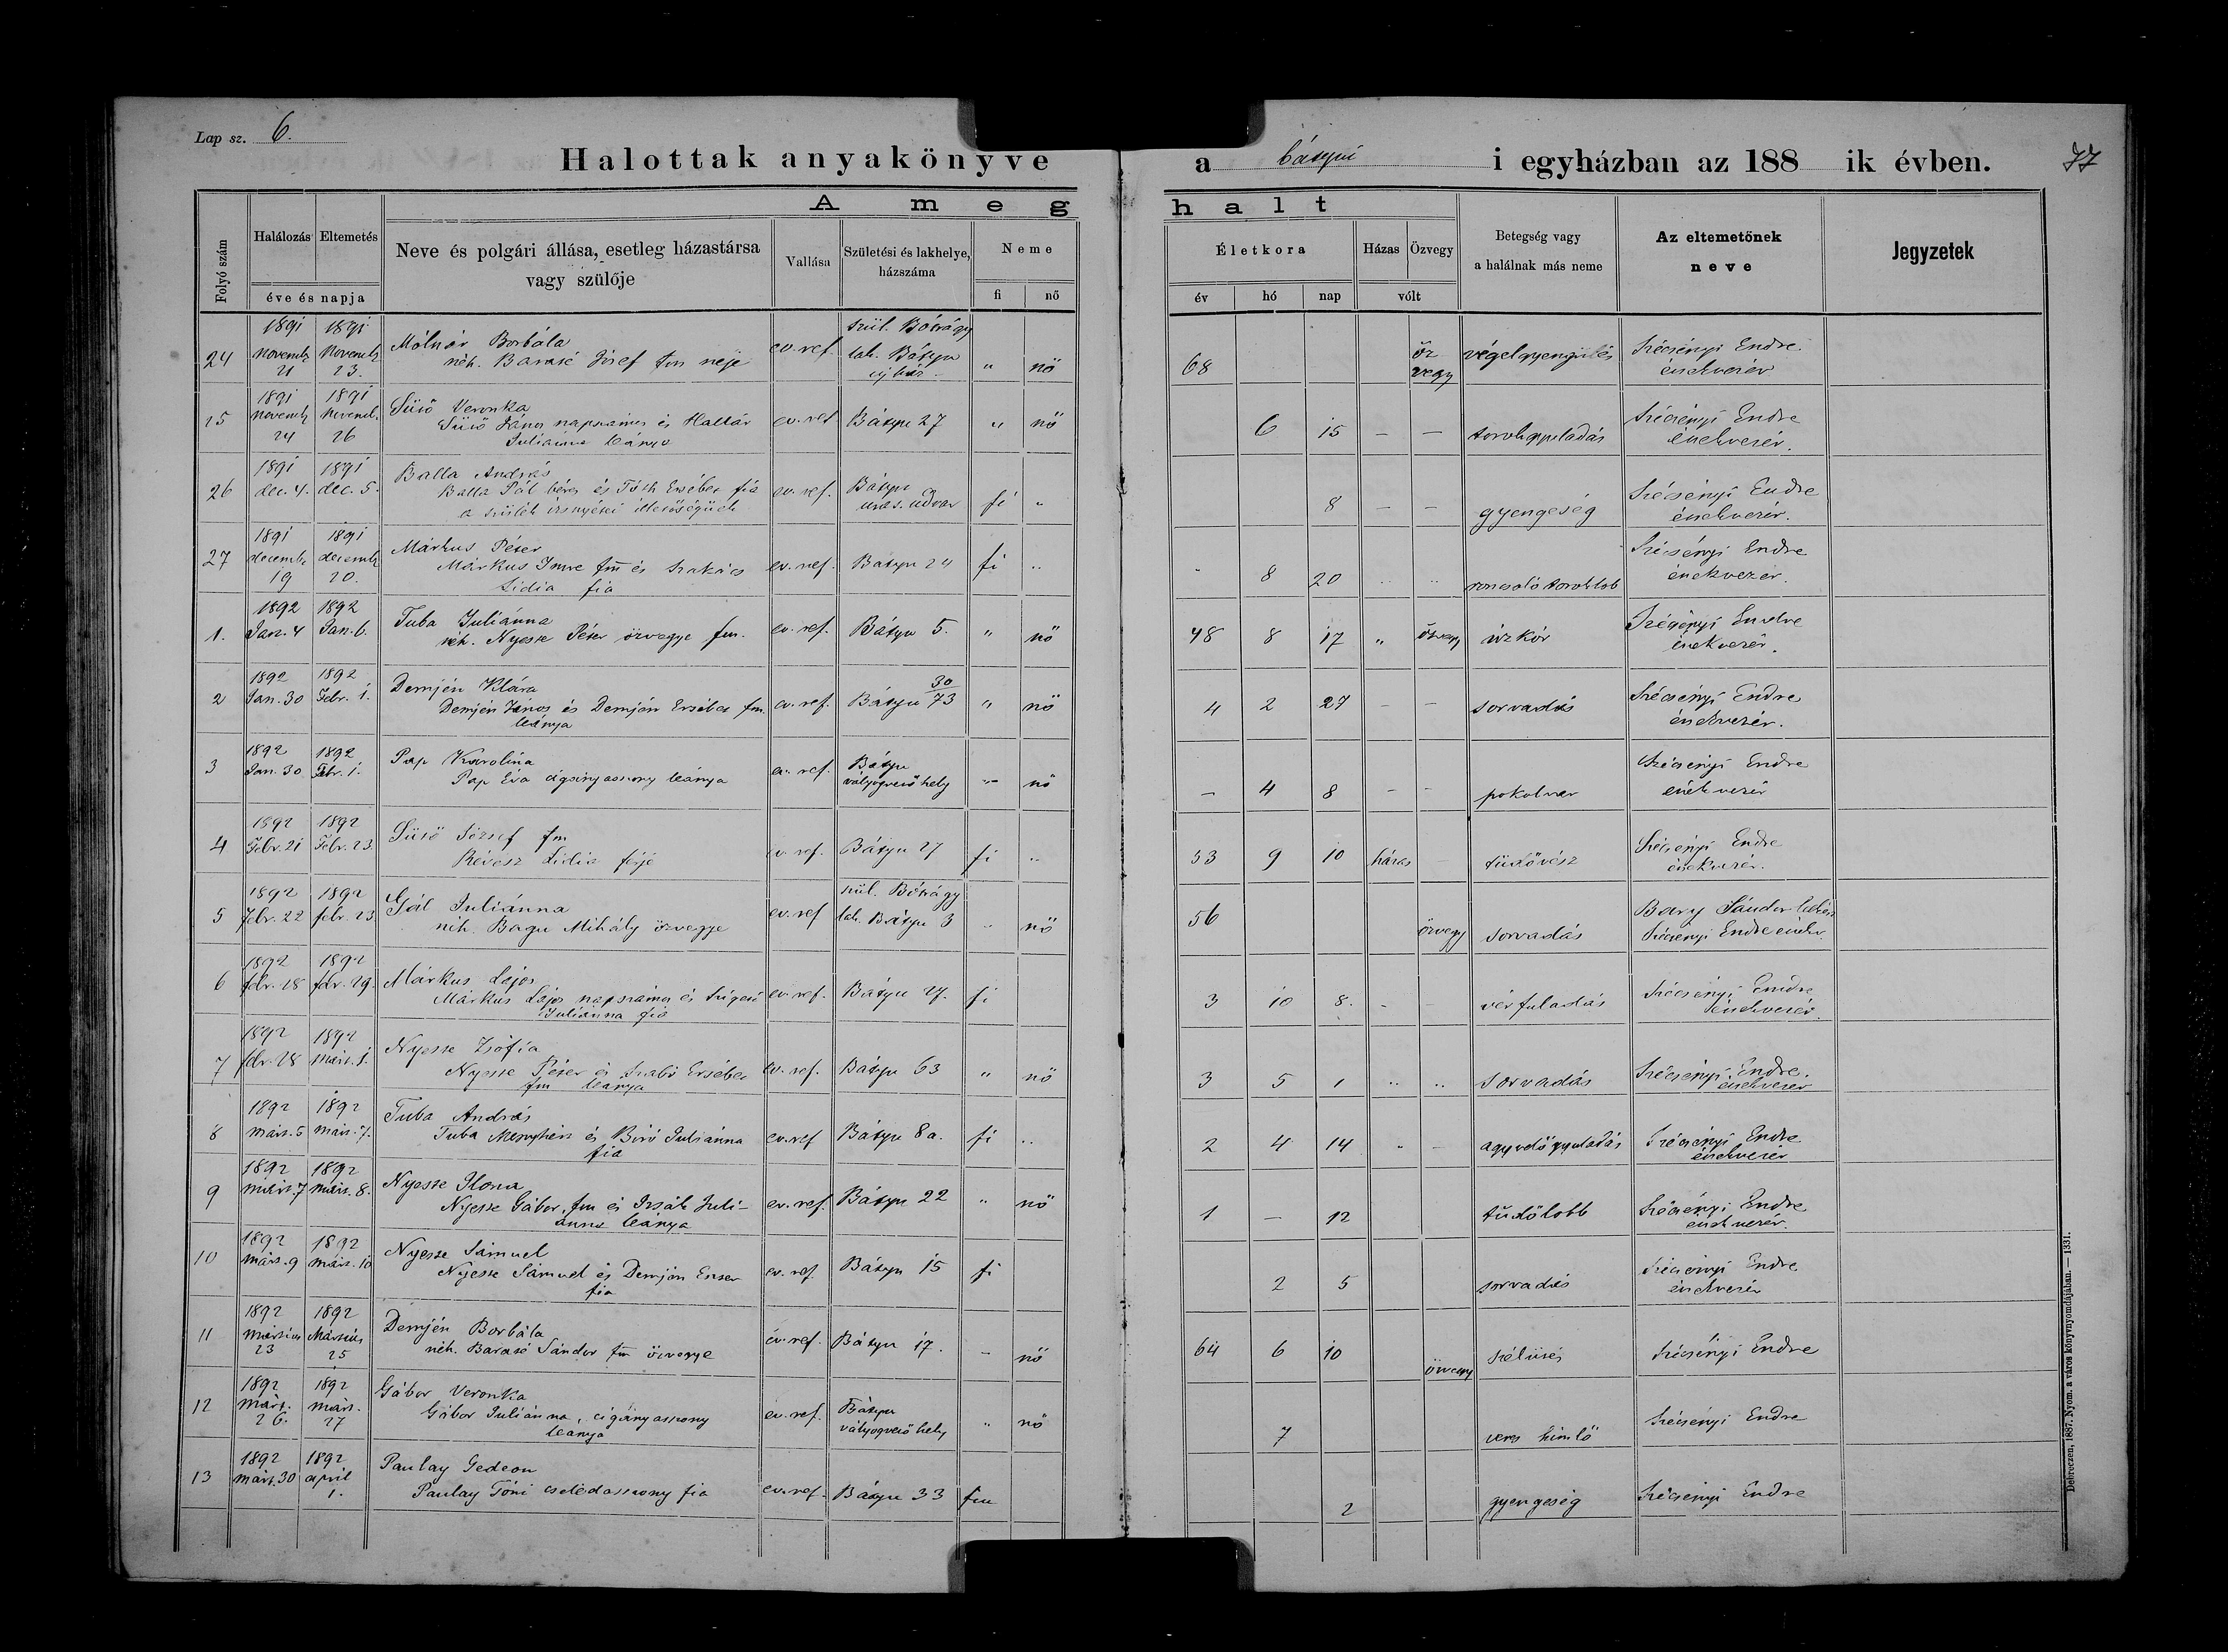 Lap sz. 6.
Halottak anyakönyve a bátyui i egyházban az 188 ik évben. 77
A meghalt
Folyó szám
Halálozás Eltemetés
éve és napja
Neve és polgári állása, esetleg házastársa
vagy szülője
Vallása
Születési és lakhelye,
házszáma
Neme
fi nő
Életkora
év hó nap
Házas Özvegy
vólt
Betegség vagy
a halálnak más neme
Az eltemetőnek
neve
Jegyzetek
1891 1891 szül. Bótrágy
24 novemb. Novemb. Molnár Borbála ev. ref. lak. Bátyu 68 öz- végelgyengülés Szécsényi Endre
21 23. néh. Baraté József fm neje " nő vegy énekvezér
1891 1891
25 novemb. novemb. Sütő Veronka ev. ref Bátyu 27 " nő 6 15 – – toroklggyuladás Szécsényi Endre
24 26 Sütő János napszámos és Halzár énekvezér.
Juliánna leánya
1891 1891 Balla András
26 dec. 4. dec. 5. Balla Pál béres és Tóth Erzsébet fia ev. ref. Bátyu fi " 8 – – gyengeség Szécsényi Endre
a szülék illetőségüek uras. udvar énekvezér.
1891 1891 Márkus Péter
27 decemb. decemb. Márkus Imre fm és Szakács ev. ref. Bátyu 24 fi " " 8 20 " " roncsoló toroklob Szécsényi Endre
19 20. Lidia fia énekvezér.
1892 1892 Tuba Juliánna
1. Jan. 4 Jan. 6. néh. Nyeste Péter özvegye fm. ev. ref. Bátyu 5. " nő 48 8 17 " özvegy vízkór Szécsényi Endre
énekvezér.
1892 1892 Demjén Klára 30
2 Jan. 30 Febr. 1. Demjén János és Demjén Erzsébet fm. ev. ref. Bátyu 73 " nő 4 2 27 – – sorvadás Szécsényi Endre
leánya énekvezér.
1892 1892 Pap Karolina Bátyu
3 Jan. 30 Febr. 1. Pap Éva cigányasszony leánya ev. ref. vályogvető hely " nő – 4 8 – – pokolvar Szécsényi Endre
énekvezér
1892 1892 Sütő József fm
4 Febr. 21 Febr. 23 Révész Lidia férje ev. ref. Bátyu 27 fi " 53 9 10 házas – tüdővész Szécsényi Endre
énekvezér.
1892 1892 Gál Juliánna szül. Bótrágy
5 febr. 22 febr. 23 néh. Bagu Mihály özvegye ev. ref lak. Bátyu 3 " nő 56 özvegy sorvadás Bary Sándor lelkész
Szécsényi Endre énekv.
1892 1892
6 febr. 28 febr. 29. Márkus Lajos ev. ref. Bátyu 27. fi 3 10 8. – – vérfuladás Szécsényi Endre
Márkus Lajos napszámos és Szigeti énekvezér.
Juliánna fia
1892 1892 Nyeste Zsófia
7 febr. 28 márt. 1. Nyeste Péter és Szabó Erzsébet ev. ref. Bátyu 63 " nő 3 5 1 " " sorvadás Szécsényi Endre.
fm leánya énekvezér
1892 1892 Tuba András
8 márt. 5 márt. 7. Tuba Menyhért és Bíró Juliánna ev. ref Bátyu 8a. fi " 2 4 14 " – agyvelőgyuladás Szécsényi Endre
fia énekvezér
1892 1892 Nyeste Ilona
9 márt. 7 márt. 8. Nyeste Gábor fm és Izsák Juli- ev. ref. Bátyu 22 " nő 1 – 12 tüdőlobb Szécsényi Endre
ánna leánya énekvezér.
1892 1892 Nyeste Sámuel
10 márt. 9 márt. 10 Nyeste Sámuel és Demjén Eszter ev. ref. Bátyu 15 fi 2 5 sorvadás Szécsényi Endre
fia énekvezér
1892 1892 Demjén Borbála
11 március Március néh. Baraté Sándor fm özvegye ev. ref. Bátyu 17. – nő 64 6 10 özvegy szélütés Szécsényi Endre
23 25
1892 1892 Gábor Veronka Bátyu
12 márt. márt. Gábor Juliánna, cigányasszony ev. ref. vályogvető hely " nő 7 veres himlő Szécsényi Endre
26. 27 leánya
1892 1892 Paulay Gedeon
13 márt. 30 april Paulay Tóni cselédasszony fia ev. ref. Bátyu 33 fiu 2 gyengeség Szécsényi Endre
1.
Debreczen, 1887. Nyom. a város könyvnyomdájában. — 1331.